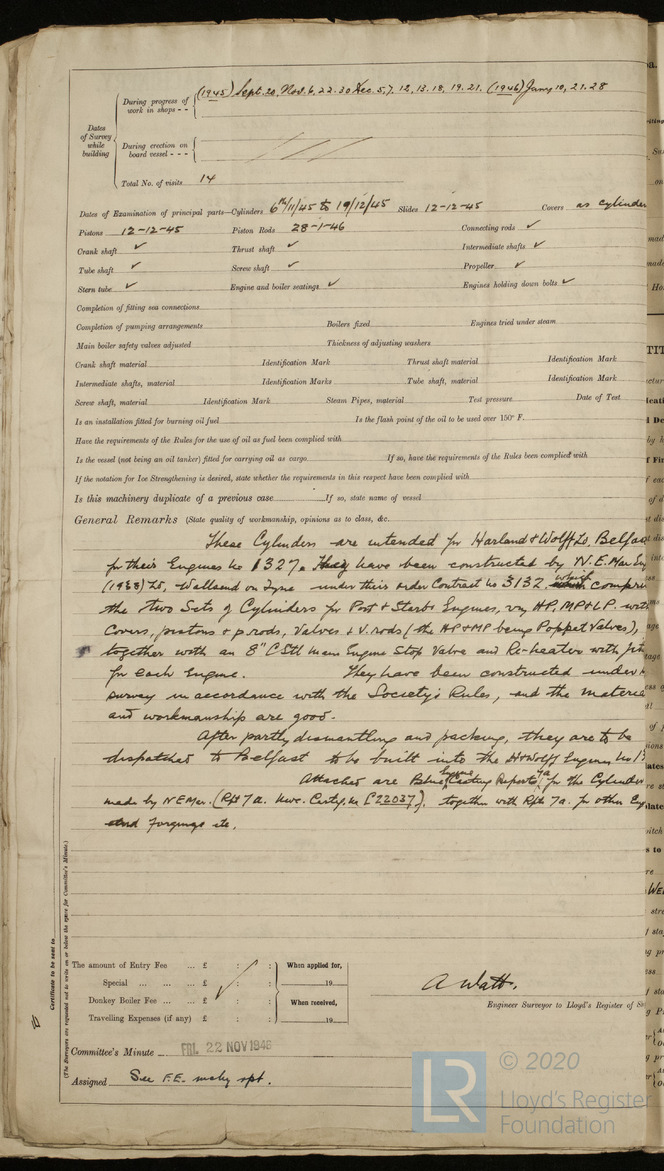 (1945) Sept. 20, Nov. 6, 22. 30 Dec. 5, 7. 12, 13. 18, 19. 21. (1946) Jany 10, 21. 28
Dates of Survey while building
During progress of work in shops - -
During erection on board vessel - - -
Total No. of visits 14
Dates of Examination of principal parts—Cylinders 6th/11/45 to 19/12/45 Slides 12-12-45 Covers as cylinder
Pistons 12-12-45 Piston Rods 28-1-46 Connecting rods ✓
Crank shaft ✓ Thrust shaft ✓ Intermediate shafts ✓
Tube shaft ✓ Screw shaft ✓ Propeller ✓
Stern tube ✓ Engine and boiler seatings ✓ Engines holding down bolts ✓
Completion of fitting sea connections
Completion of pumping arrangements Boilers fixed Engines tried under steam
Main boiler safety valves adjusted Thickness of adjusting washers
Crank shaft material Identification Mark Thrust shaft material Identification Mark
Intermediate shafts, material Identification Marks Tube shaft, material Identification Mark
Screw shaft, material Identification Mark Steam Pipes, material Test pressure Date of Test
Is an installation fitted for burning oil fuel Is the flash point of the oil to be used over 150° F.
Have the requirements of the Rules for the use of oil as fuel been complied with
Is the vessel (not being an oil tanker) fitted for carrying oil as cargo If so, have the requirements of the Rules been complied with
If the notation for Ice Strengthening is desired, state whether the requirements in this respect have been complied with
Is this machinery duplicate of a previous case If so, state name of vessel
General Remarks (State quality of workmanship, opinions as to class, &c.
These Cylinders are intended for Harland & Wolff Ld, Belfas
for their Engines No 1327. They have been constructed by N.E. Mar. Eng
(1938) Ld, Wallsend on Tyne under their order Contract No 3132 which compri
the Two Sets of Cylinders for Port & Starbd Engines, viz HP, MP & LP. with
Covers, pistons & p. rods, Valves & V. rods (the HP & MP being Poppet Valves),
together with an 8" C Stl main Engine Stop Valve and Re-heater with
for each Engine. They have been constructed under
survey in accordance with the Society's Rules, and the materia
and workmanship are good.
After partly dismantling and packing, they are to be
dispatched to Belfast to be built into the H & Wolff Engines No 13
Attached are Engine Casting Reports 7a for the Cylinder
made by N E Mar. (Rpt 7a. Nwc. Certif. No C22037), together with Rpts 7a. for other Eng
forgings etc.
Certificate to be sent to
(The Surveyors are requested not to write on or below the space for Committee's Minute.)
The amount of Entry Fee ... £ : : When applied for,
Special ... ... £ : : 19
Donkey Boiler Fee ... ... £ : : When received,
Travelling Expenses (if any) £ : : 19
A Watt.
Engineer Surveyor to Lloyd's Register of S
Committee's Minute FRI. 22 NOV 1946
Assigned See F.E. mchy rpt.
LR
© 2020
Lloyd's Register
Foundation